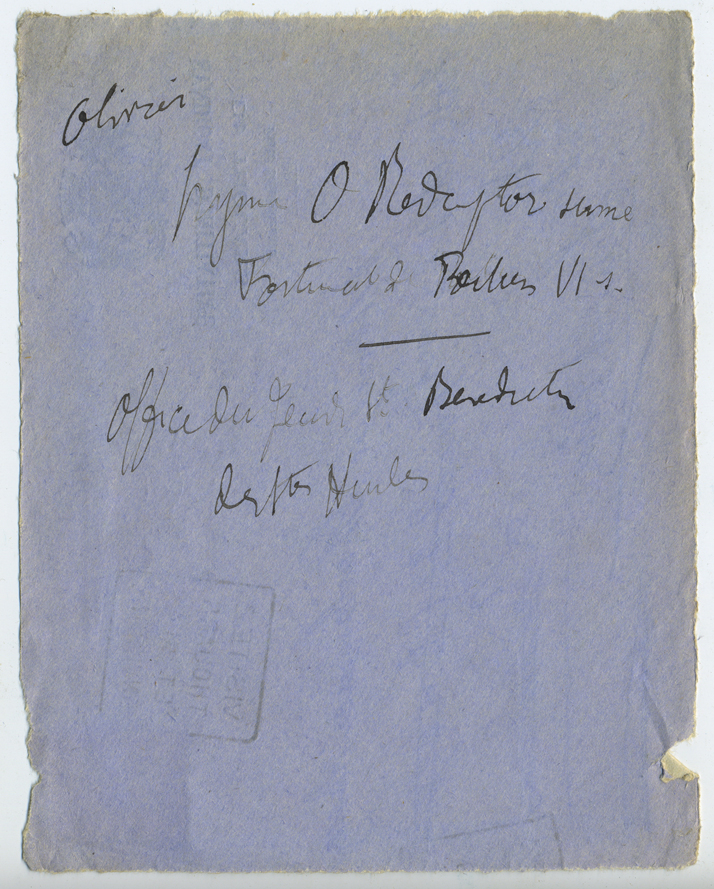 Olivier
Hymne O Redemptor sume
Fortunat de Poitiers VI s.
Office du Jeudi St Benedictio
des Stes Huiles